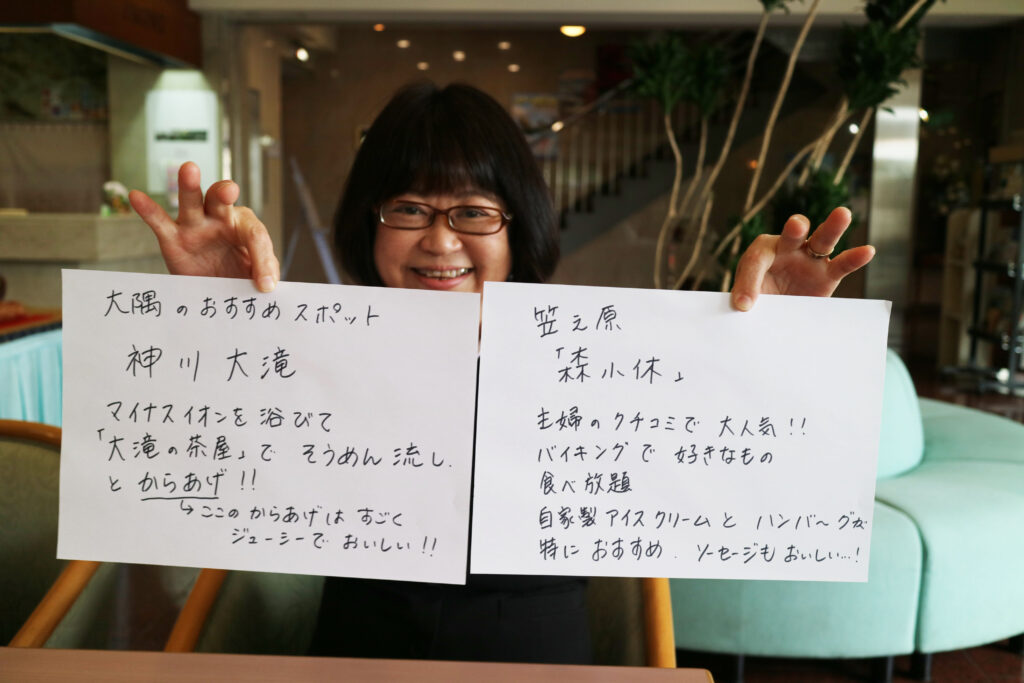 大隅のおすすめスポット
神川大滝
マイナスイオンを浴びて
「大滝の茶屋」でそうめん流し.
とからあげ!!
↳ここのからあげはすごく
ジューシーでおいしい!!
笠之原
「森小休」
主婦のクチコミで大人気!!
バイキングで好きなもの
食べ放題
自家製アイスクリームとハンバ〜グが
特におすすめ.ソーセージもおいしい…!